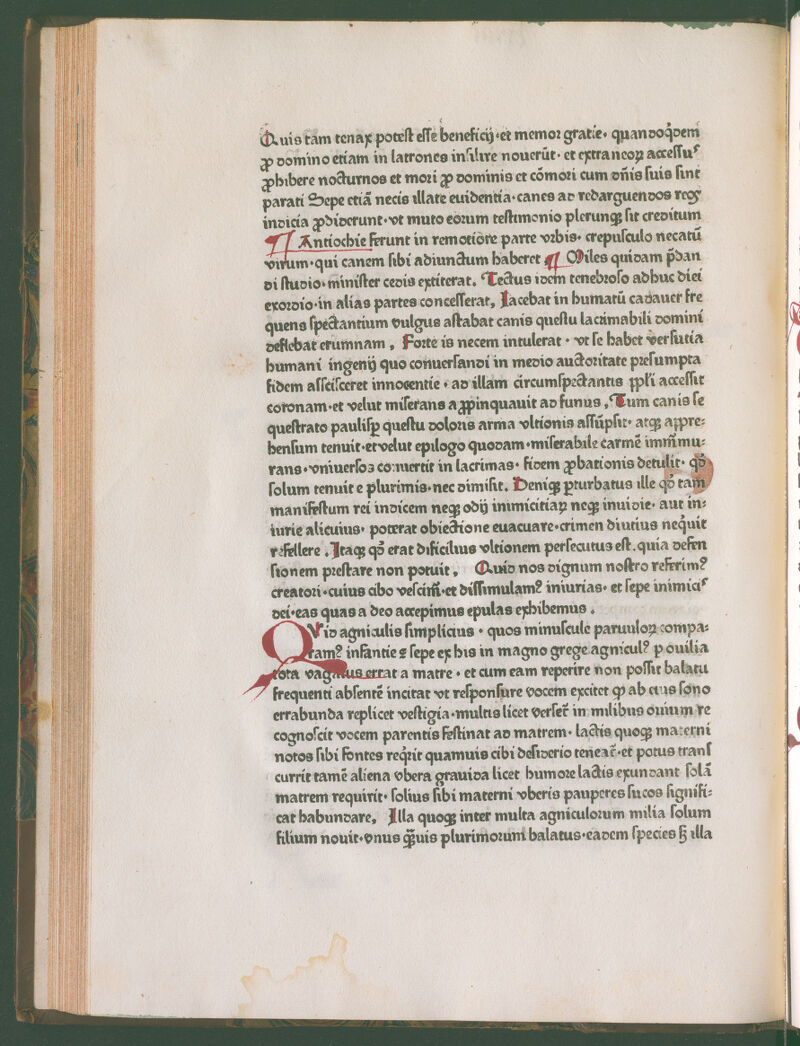 Quis tam tenax potest esse beneficij·et memor gratie· quandoq̄dem
ꝓ domino etiam in latrones insilire nouerūt· et extraneoꝝ accessuꝰ
ꝓhibere nocturnos et mori ꝓ dominis et cōmori cum dn̄is suis sint
parati Sepe etiā necis illate euidentia·canes ad redarguendos reos
indicia ꝓdiderunt·vt muto eorum testimonio plerunqꝫ sit creditum
¶ Antiochie ferunt in remotiore parte vrbis· crepusculo necatū
virum·qui canem sibi adiunctum haberet ¶ Miles quidam p̄dan
di studio·minister cedis extiterat. Tectus idem tenebroso adhuc diei
exordio·in alias partes concesserat. Iacebat in humatū cadauer fre
quens spectantium vulgus astabat canis questu lacrimabili domini
deflebat erumnam. Forte is necem intulerat· vt se habet versutia
humani ingenij quo conuersandi in medio auctoritate presumpta
fidem ascisceret innocentie· ad illam circumspectantis ppl̄i accessit
coronam·et velut miserans appinquauit ad funus. Tum canis se
questrato paulisꝑ questu doloris arma vltionis assūpsit· atqꝫ appre-
hensum tenuit·et velut epilogo quodam·miserabile carmē immmu-
rans·vniuersos conuertit in lacrimas· fidem ꝓbationis detulit· qđ
solum tenuit e plurimis·nec dimisit. Deniqꝫ ꝑturbatus ille qđ tam
manifestum rei indicem neqꝫ odij inimicitiaꝝ neqꝫ inuidie· aut in-
iurie alicuius· poterat obiectione euacuare·crimen diutius neq̇uit
refellere. Itaqꝫ qđ erat dificilius vltionem persecutus est·quia defen
sionem prestare non potuit. Quid nos dignum nostro referimꝰ
creatori·cuius cibo vescimꝰ·et dissimulamꝰ iniurias· et sepe inimiciꝰ
dei·eas quas a deo accepimus epulas exhibemus.
QVid agniculis simplicius· quos minuscule paruuloꝝ compa-
ramꝰ infantie ⁊ sepe ex his in magno grege agniculꝰ p ouilia
tota vagatus errat a matre· et cum eam reperire non possit balatu
frequenti absentē incitat vt responsure vocem excitet qꝫ ab cuius sono
errabunda replicet vestigia·multis licet verset̄ in milibus ouium re
cognoscit vocem parentis festinat ad matrem· lactis quoqꝫ materni
notos sibi fontes req̇rit quamuis cibi desiderio teneat̄·et potus trans
currit tamē aliena vbera grauida licet humore lactis exundant solā
matrem requirit· solius sibi materni vberis pauperes sucos signifi-
cat habundare. Illa quoqꝫ inter multa agniculorum milia solum
filium nouit·vnus q̄uis plurimorum balatus·eadem species sꝫ illa